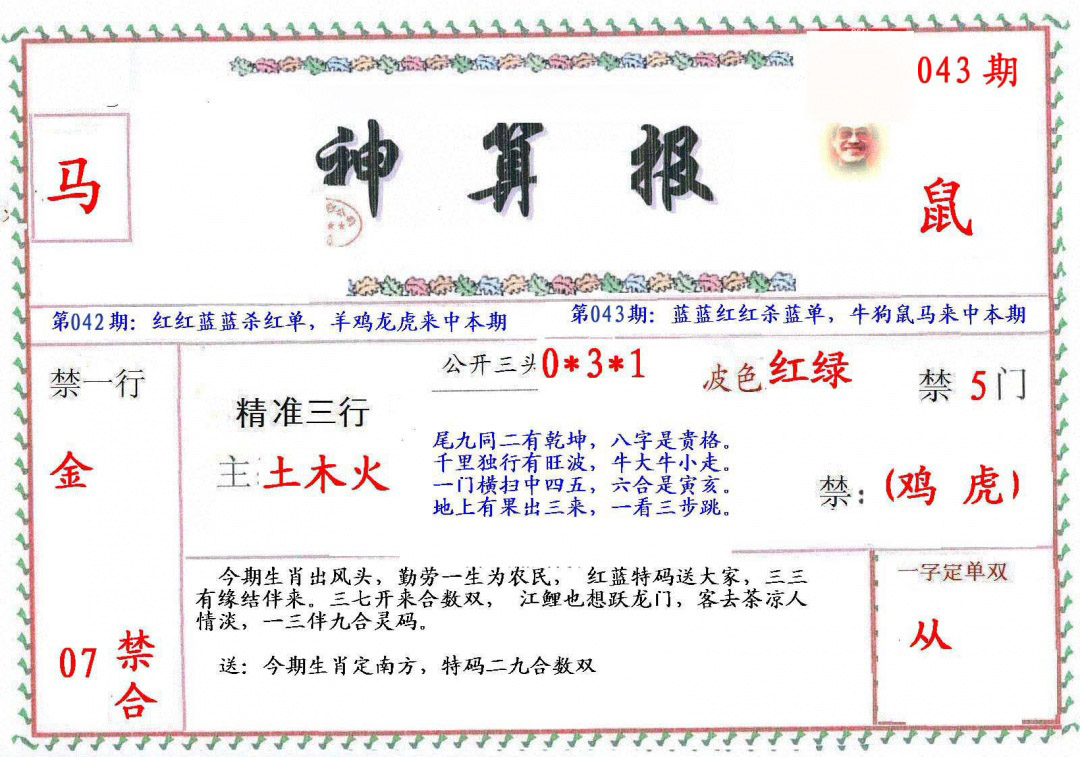 043期
神算报
马
鼠
第042期：红红蓝蓝杀红单，羊鸡龙虎来中本期
第043期：蓝蓝红红杀蓝单，牛狗鼠马来中本期
禁一行
金
07 禁合
精准三行
主:土木火
公开三头0*3*1
波色 红绿
禁 5门
禁：(鸡 虎)
尾九同二有乾坤，八字是贵格。
千里独行有旺波，牛大牛小走。
一门横扫中四五，六合是寅亥。
地上有果出三来，一看三步跳。
今期生肖出风头，勤劳一生为农民， 红蓝特码送大家，三三
有缘结伴来。三七开来合数双， 江鲤也想跃龙门，客去茶凉人
情淡，一三伴九合灵码。
送：今期生肖定南方，特码二九合数双
一字定单双
从